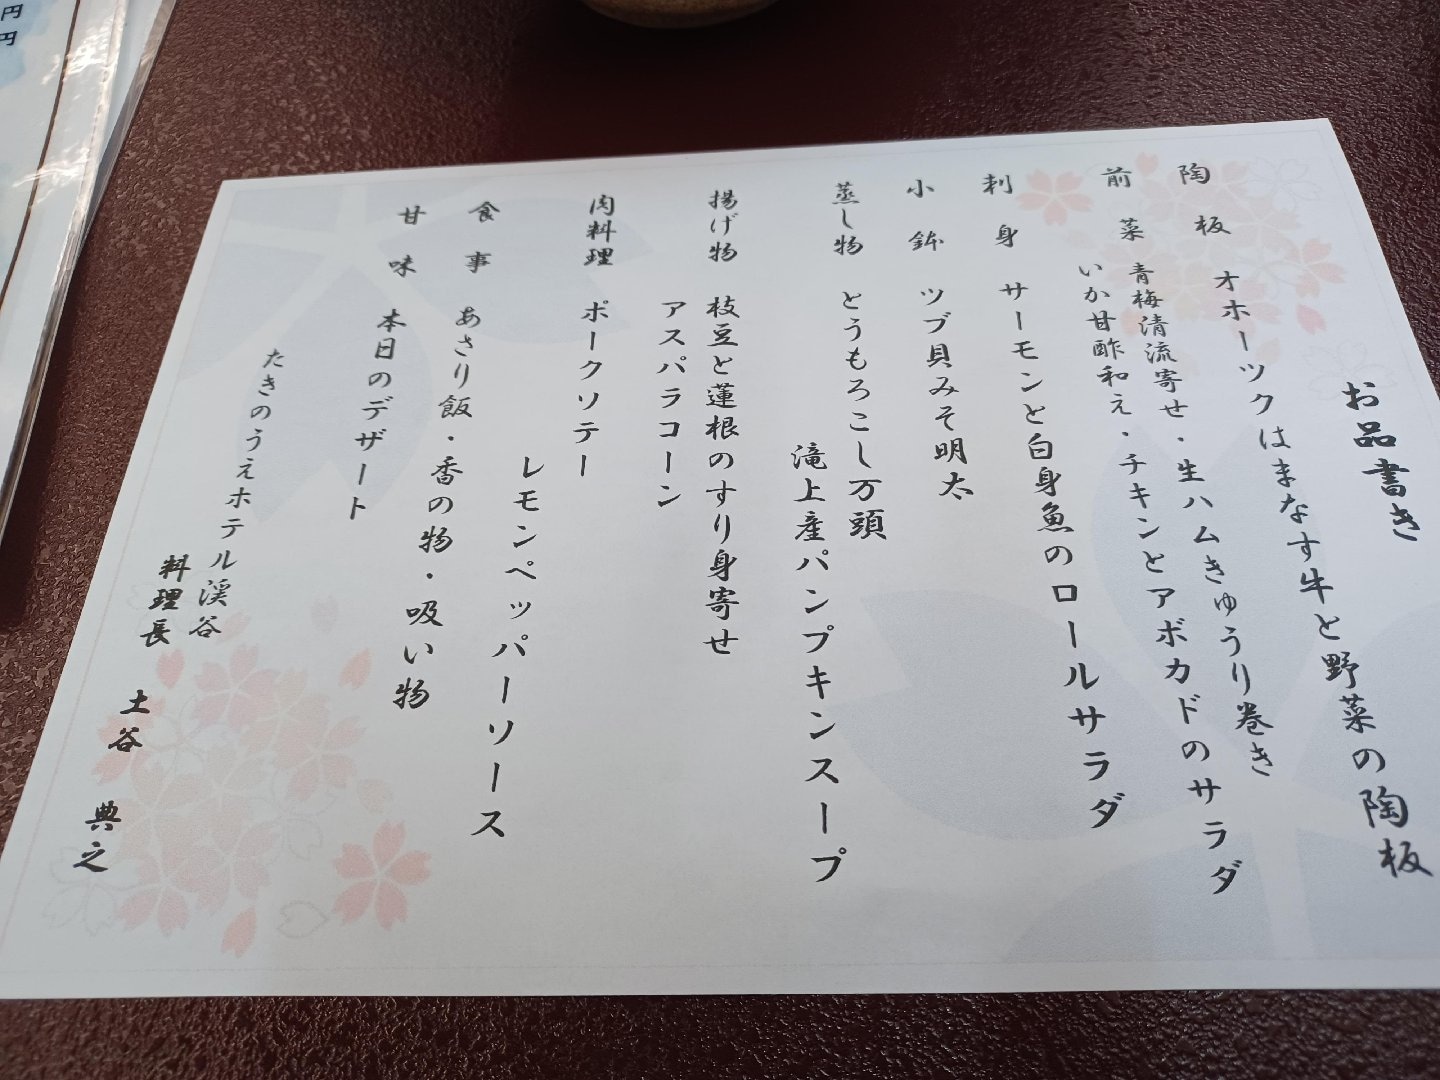 お品書き
陶板 オホーツクはまなす牛と野菜の陶板
前菜 青梅清流寄せ・生ハムきゅうり巻き
いか甘酢和え・チキンとアボカドのサラダ
刺身 サーモンと白身魚のロールサラダ
小鉢 ツブ貝みそ明太
蒸し物 とうもろこし万頭
滝上産パンプキンスープ
揚げ物 枝豆と蓮根のすり身寄せ
アスパラコーン
肉料理 ポークソテー
レモンペッパーソース
食事 あさり飯・香の物・吸い物
甘味 本日のデザート
たきのうえホテル渓谷
料理長 土谷 典之
円
円